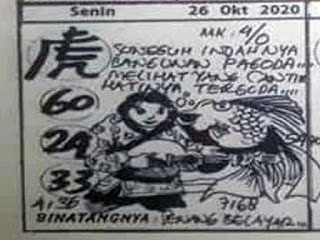 Senin 26 Okt 2020
MK: 4/0
虎 SUNGGUH INDAHNYA
BANGUNAN PAGODA...
MELIHAT YANG CANTIK
HATINYA TERGODA....
60
29
33
A: 36 7168
BINATANGNYA: BELAYAR...